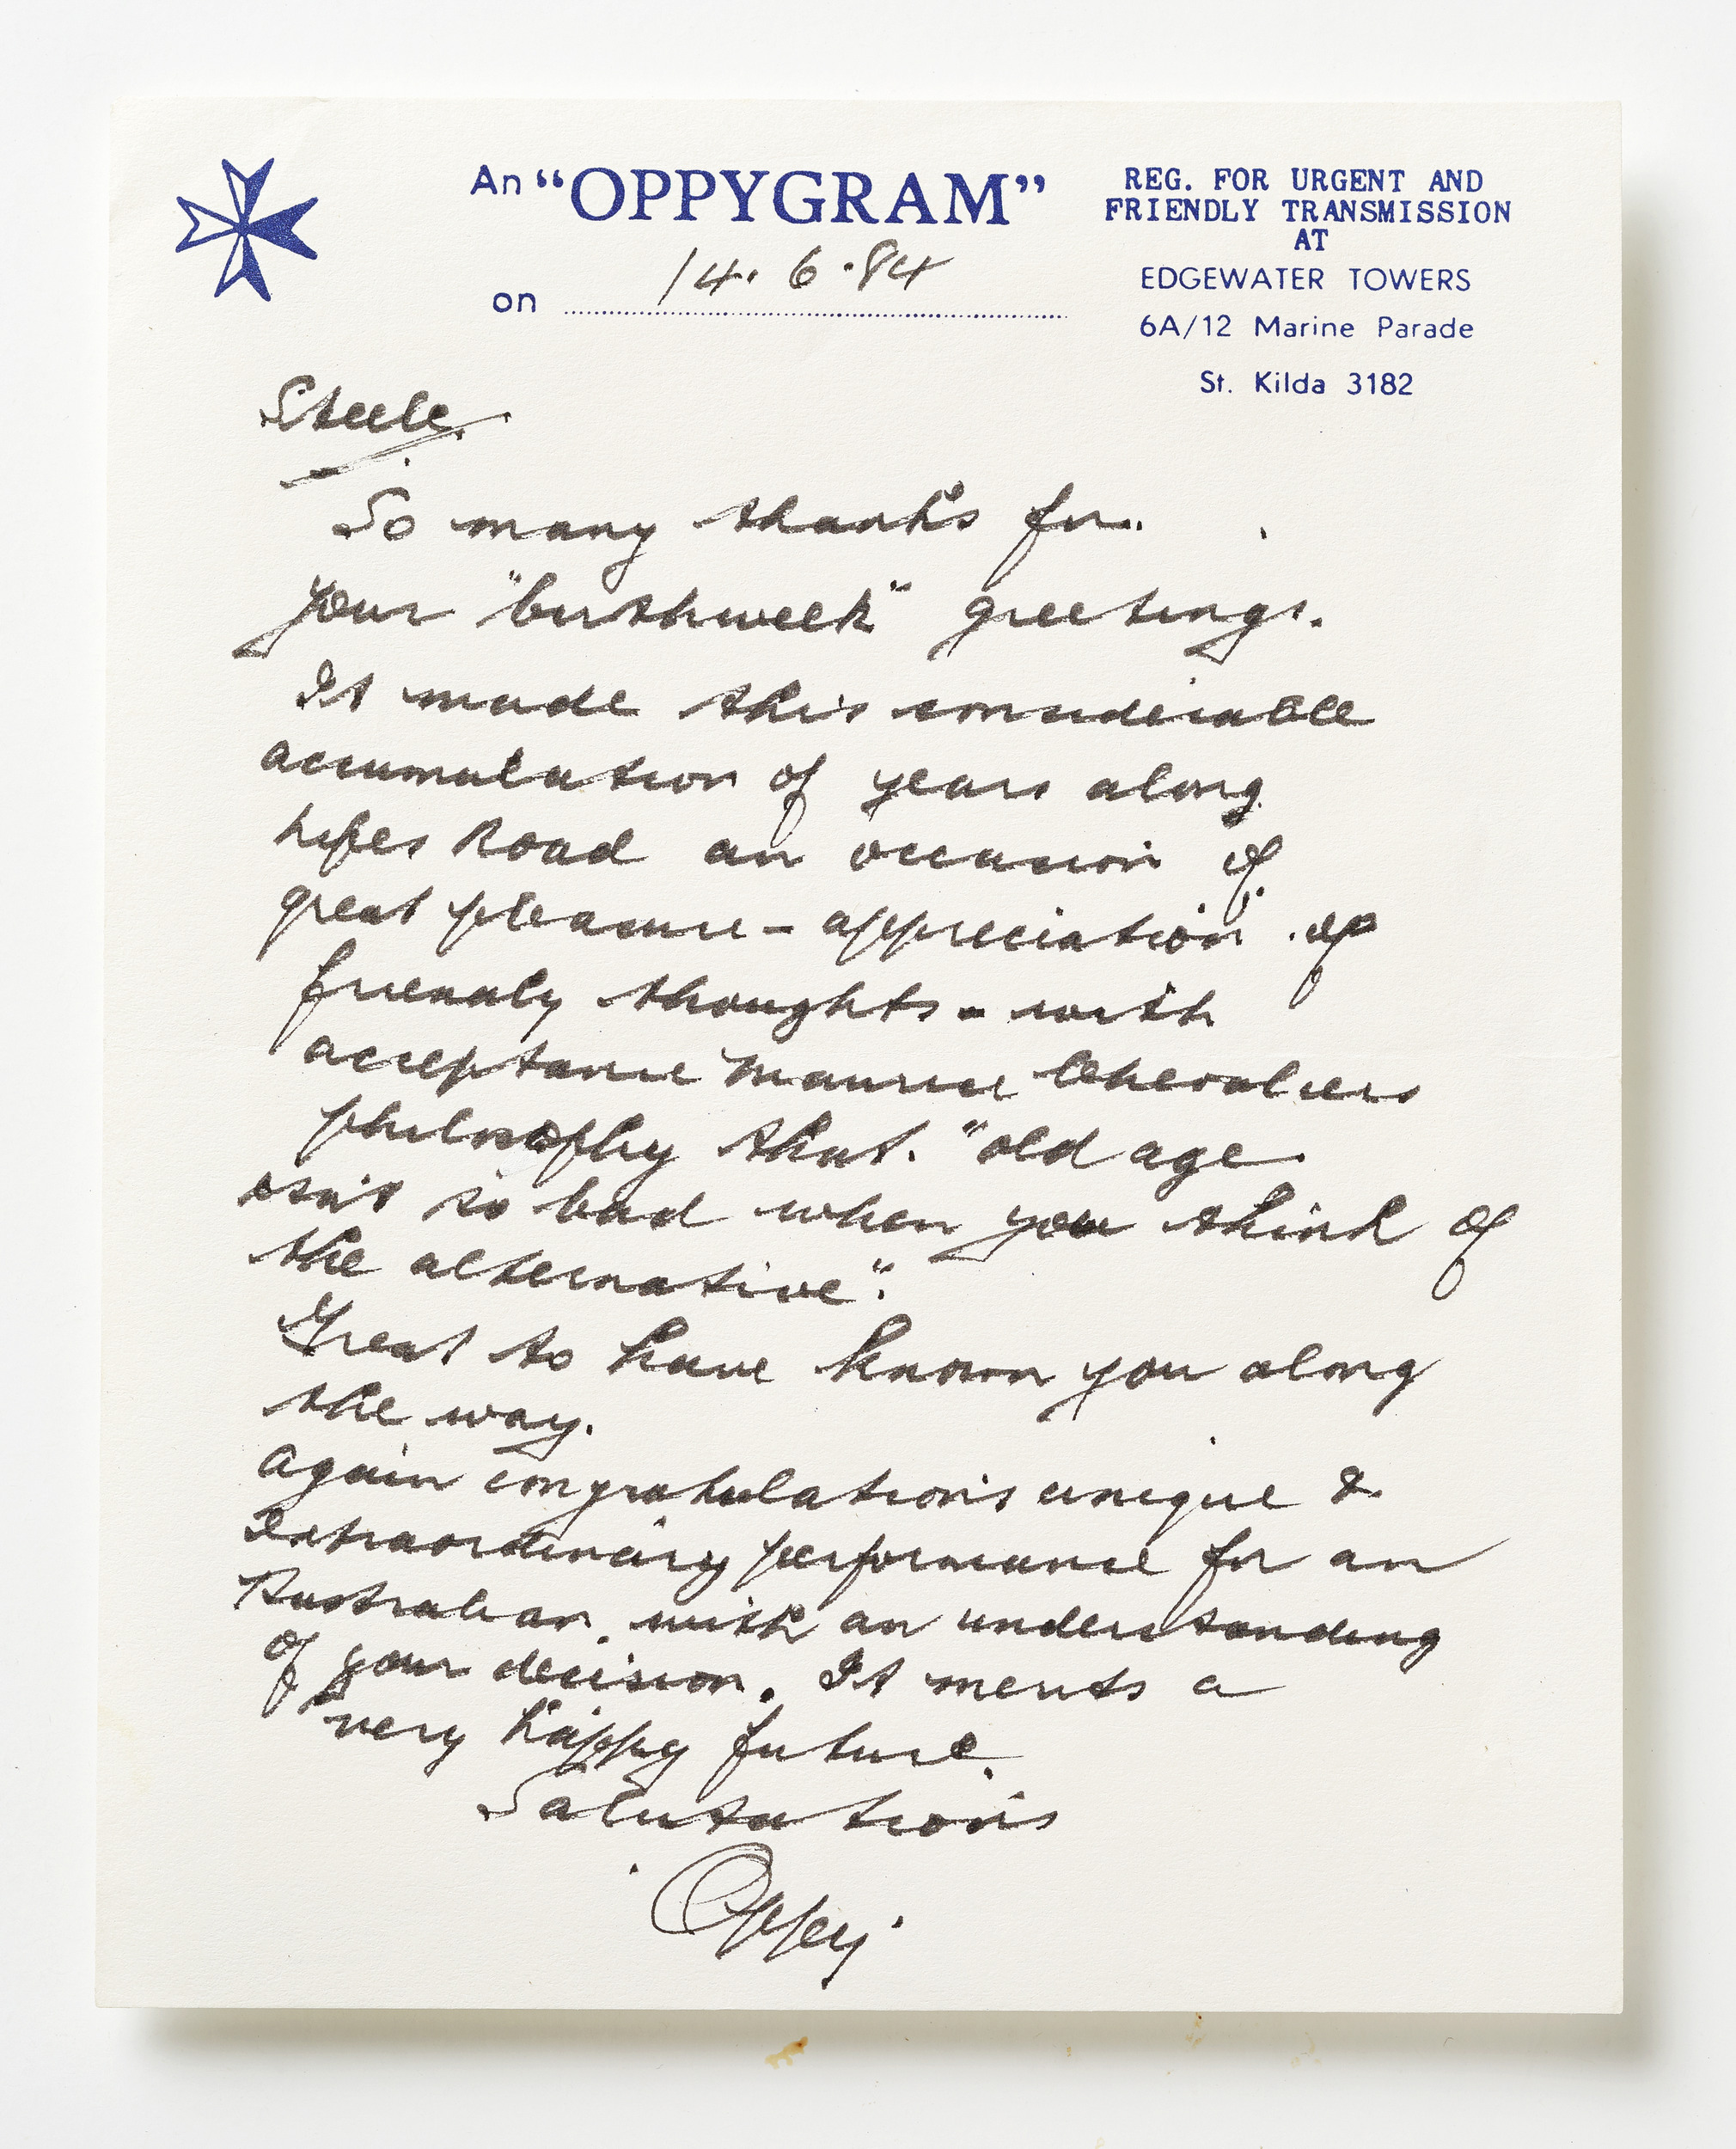 An "OPPYGRAM"
on 14.6.84
REG. FOR URGENT AND
FRIENDLY TRANSMISSION
AT
EDGEWATER TOWERS
6A/12 Marine Parade
St. Kilda 3182
Steele.
So many thanks for..
your "birthweek" greetings.
It made this considerable
accumulation of years along
lifes Road an occasion of
great pleasure - appreciation of
friendly thoughts - with
acceptance Maurice Chevaliers
philosophy that. "old age
isn't so bad when you think of
the alternative".
Great to have known you along
the way.
Again congratulations unique &
extraordinary performance for an
Australian, with an understanding
of your decision. It merits a
very happy future.
Salutations
Oppy.